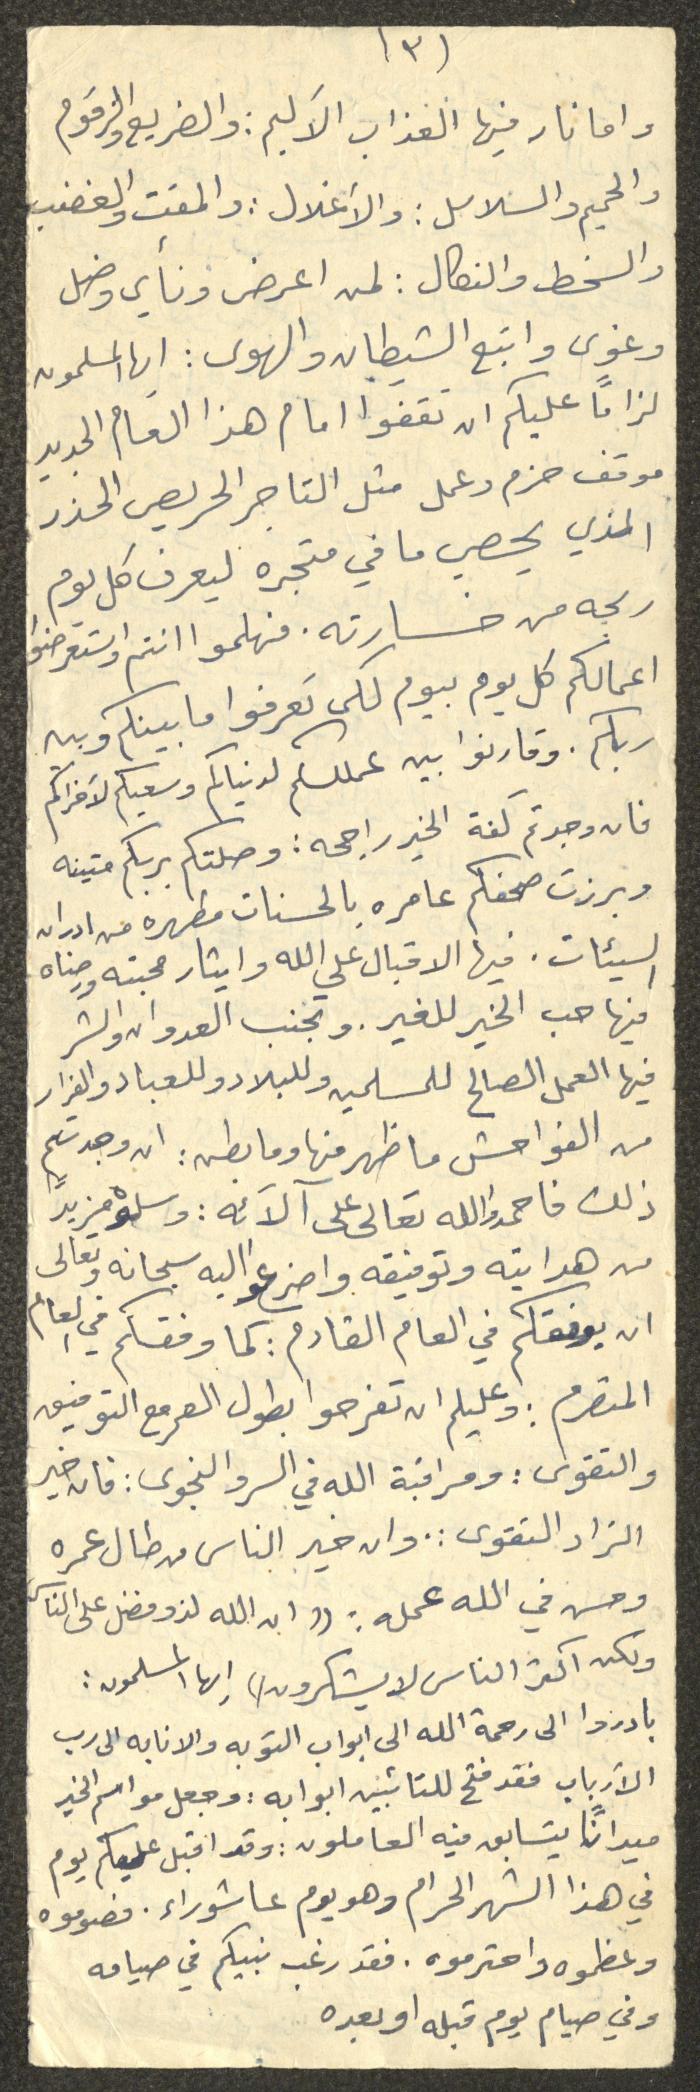 (٣)
واما نار فيها العذاب الأليم: والضريع والزقوم
والحميم والسلاسل: والأغلال: والمقت والغضب
والسخط والنكال: لمن اعرض ونأى وضل
وغوى واتبع الشيطان والهوى: ايها المسلمون
لزامًا عليكم ان تقفوا امام هذا العام الجديد
موقف حزم وعمل مثل التاجر الحريص الحذر
الذي يحصي ما في متجره ليعرف كل يوم
ربحه من خسارته. فهلموا انتم واستعرضوا
اعمالكم كل يوم بيوم لكى تعرفوا ما بينكم وبين
ربكم. وقارنوا بين عملكم لدنياكم وسعيكم لأخراكم
فان وجدتم كفة الخير راجحه: وصلتكم بربكم متينه
وبرزت صحفكم عامره بالحسنات مطهره من ادران
السيئات. فيها الاقبال علي الله وايثار محبته ورضاه
فيها حب الخير للغير. وتجنب العدوان والشر
فيها العمل الصالح للمسلمين وللبلاد وللعباد والفرار
من الفواحش ما ظهر منها وما بطن: ان وجدتم
ذلك فاحمدوا الله تعالى على آلآئه: وسلوه مزيدًا
من هدايته وتوفيقه واضرعوا اليه سبحانه وتعالى
ان يوفقكم في العام القادم: كما وفقكم في العام
المنصرم: وعليكم ان تفرحوا بطول العمر مع التوفيق
والتقوى: ومراقبة الله في السر والنجوى: فان خير
الزاد التقوى:. وان خير الناس من طال عمره
وحسن في الله عمله: (( ان الله لذو فضل على الناس
ولكن اكثر الناس لا يشكرون)) ايها المسلمون:
بادروا الى رحمة الله الى ابواب التوبه والانابه الى رب
الأرباب فقد فتح للتائبين ابوابه: وجعل مواسم الخير
ميدانًا يتسابق فيه العاملون: وقد اقبل عليكم يوم
في هذا الشهر الحرام وهو يوم عاشوراء. فصوموه
وعظموه واحترموه. فقد رغب نبيكم في صيامه
وفي صيام يوم قبله او بعده